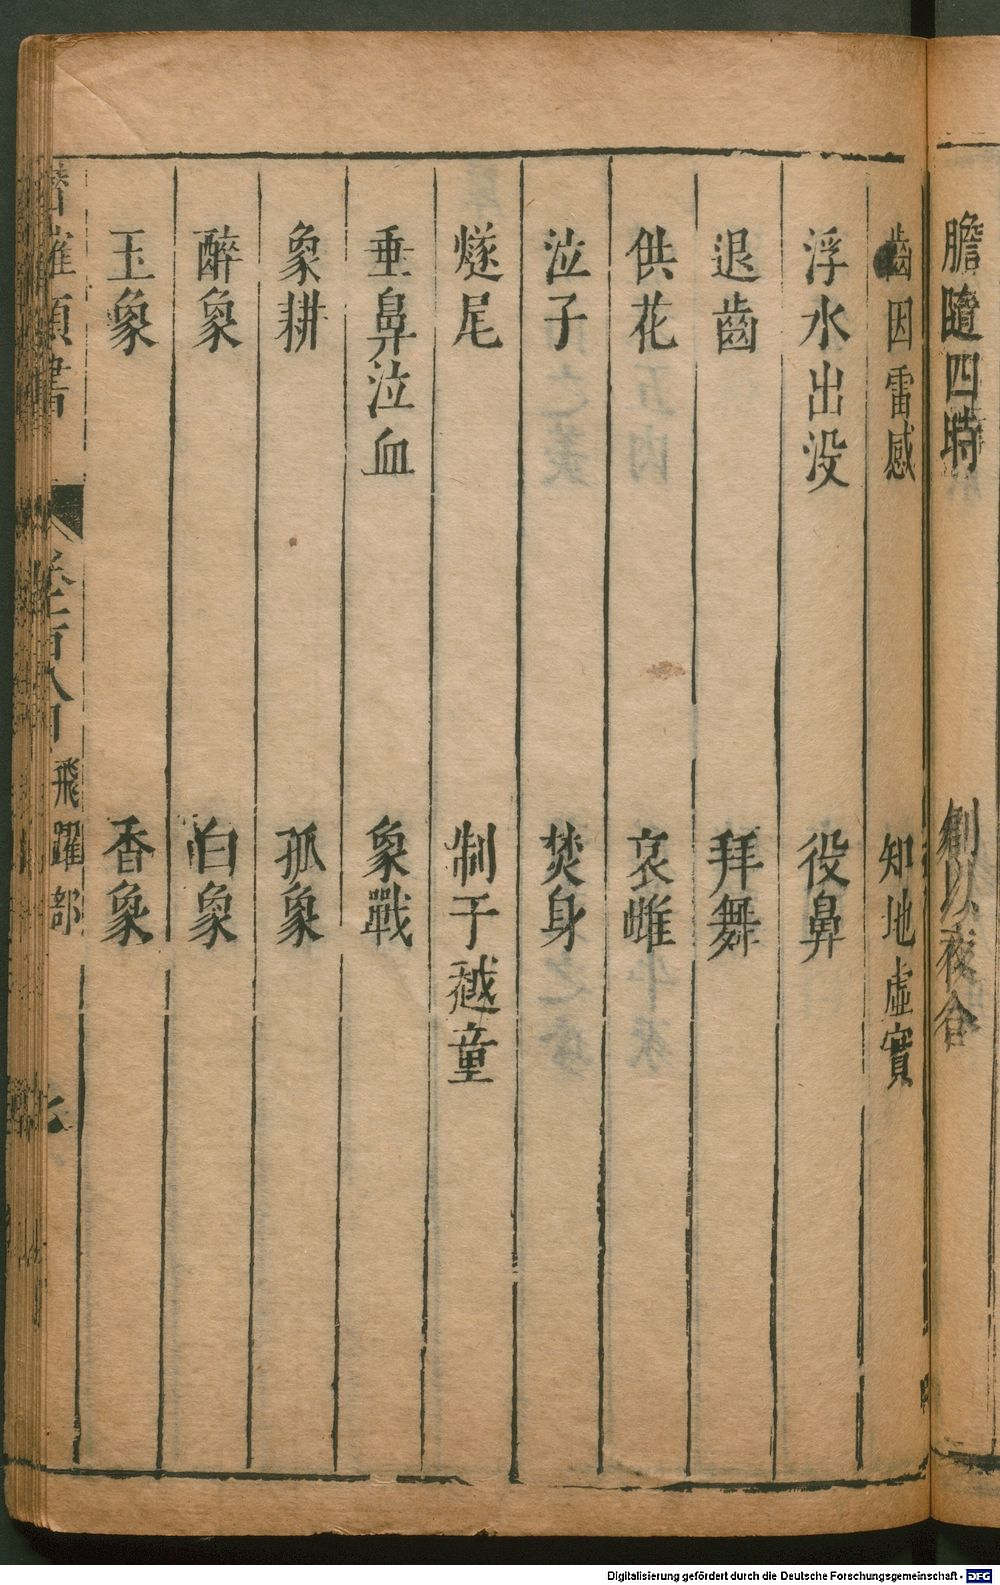 膽隨四時　創以夜合
齒因雷感　知地虛實
浮水出没　役鼻
退齒　拜舞
供花　哀雌
泣子　焚身
燧尾　制于越童
垂鼻泣血　象戰
象耕　孤象
醉象　白象
玉象　香象
飛躍部
Digitalisierung gefördert durch die Deutsche Forschungsgemeinschaft - DFG